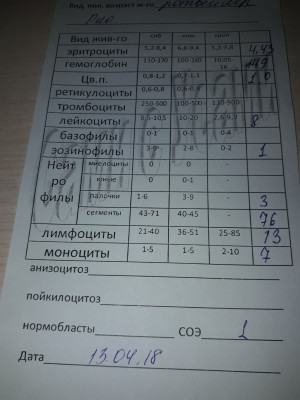 Вид, пол, возраст ж-го ротвейлер
Рио
Вид жив-го соб кош крол
эритроциты 5,2-8,4 6,6-9,4 5,2-7,8 4,43
гемоглобин 110-170 100-140 149
Цв.п. 0,8-1,2 1,0
ретикулоциты 0,6-0,8
тромбоциты 250-500 100-500 120-900
лейкоциты 8,5-10,5 10-20 8
базофилы 0-1 0-1 0-4
эозинофилы 3-9 2-8 0-2 1
Нейтрофилы
миелоциты 0 0 -
юные 0 0-1 -
палочки 1-6 3-9 - 3
сегменты 43-71 40-45 - 76
лимфоциты 21-40 36-51 25-85 13
моноциты 1-5 1-5 2-10 7
анизоцитоз
пойкилоцитоз
нормобласты СОЭ 1
Дата 13.04.18